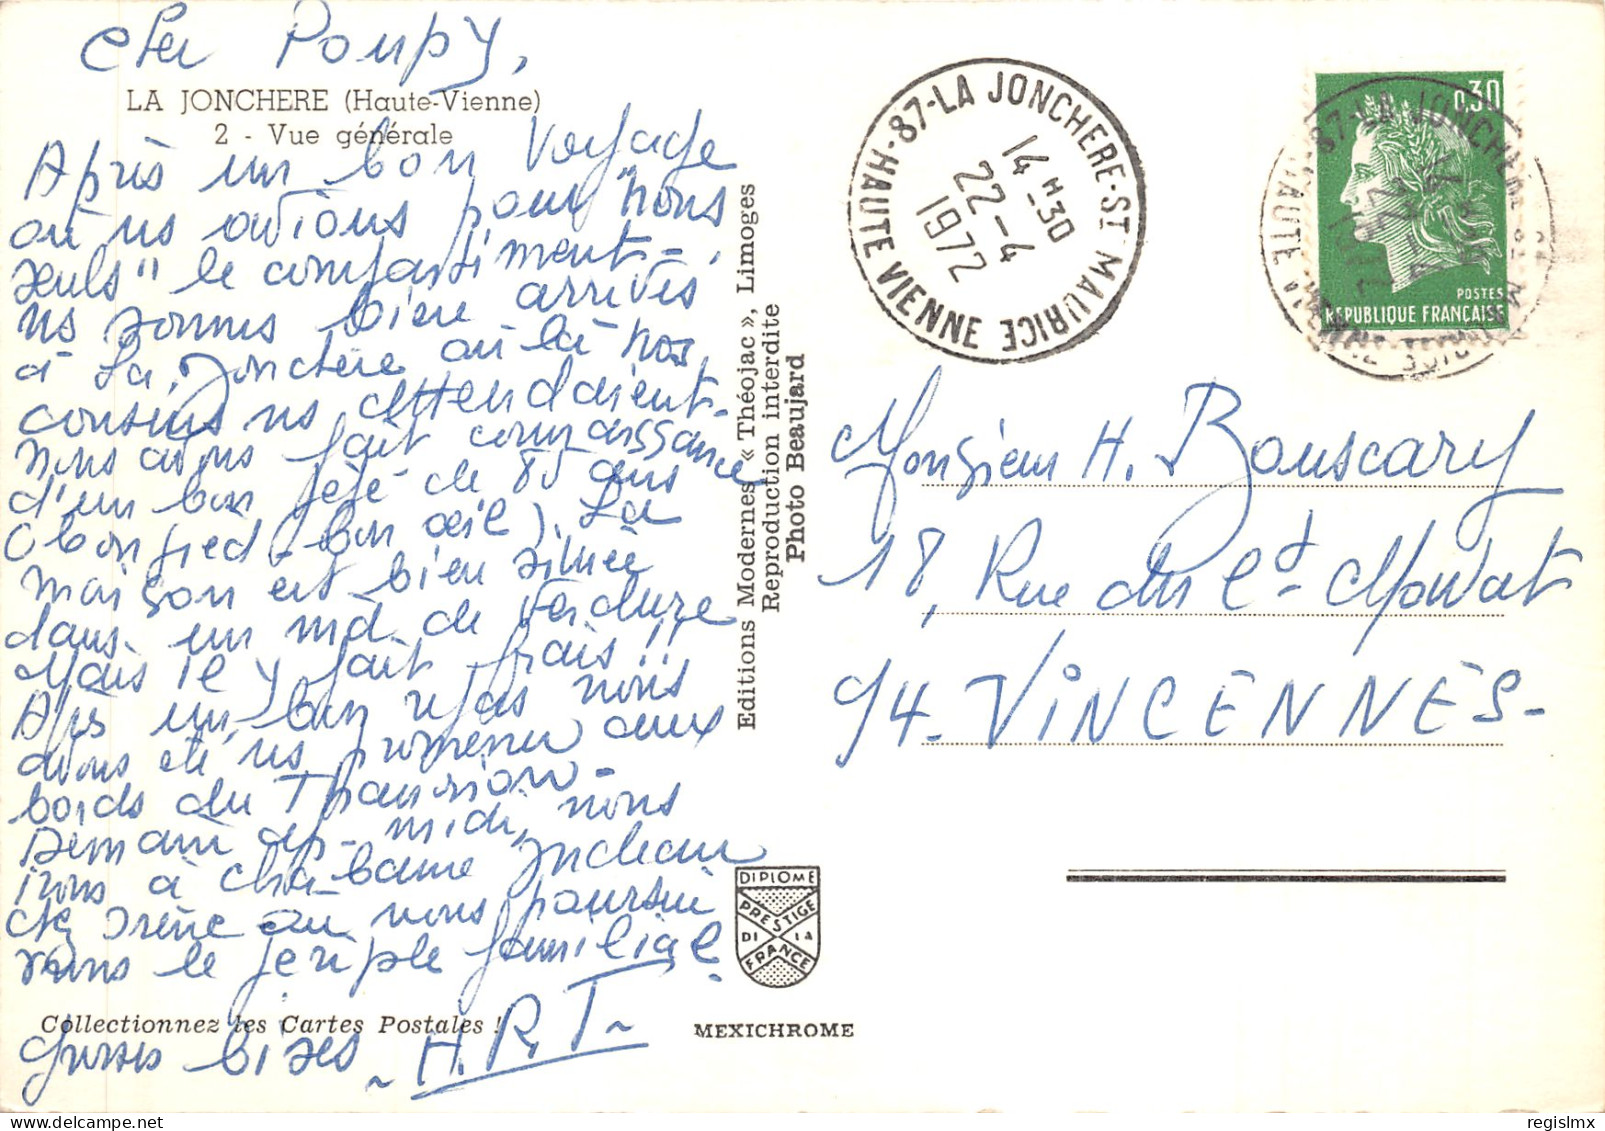 Cher Poupy,
LA JONCHERE (Haute-Vienne)
2 - Vue générale
Après un bon voyage
où ns avions pour "nous
seuls" le compartiment -,
ns sommes bien arrivés
à La Jonchère où là nos
cousins ns attendaient.
Nous avons fait connaissance
d'un bon pépé de 80 ans
(bon pied - bon œil). La
maison est bien située
dans un nid de verdure
Mais il y fait frais!!
Après un bon repas nous
avons été ns promener aux
bords du Thaurion -
Demain ap-midi, nous
irons à
chez Irène où nous poursui
vrons le périple familial.
Collectionnez les Cartes Postales !
Grosses bises
H.R.T-
Editions Modernes « Théojac », Limoges
Reproduction interdite
Photo Beaujard
DIPLOME
PRESTIGE
DE LA
FRANCE
MEXICHROME
87-LA JONCHERE-ST MAURICE
HAUTE VIENNE
14 H 30
22-4
1972
0,30
POSTES
REPUBLIQUE FRANÇAISE
87-LA JONCHERE-ST MAURICE
Monsieur H. Bouscary
18, Rue du Ct Mowat
94. VINCENNES-
regislmx